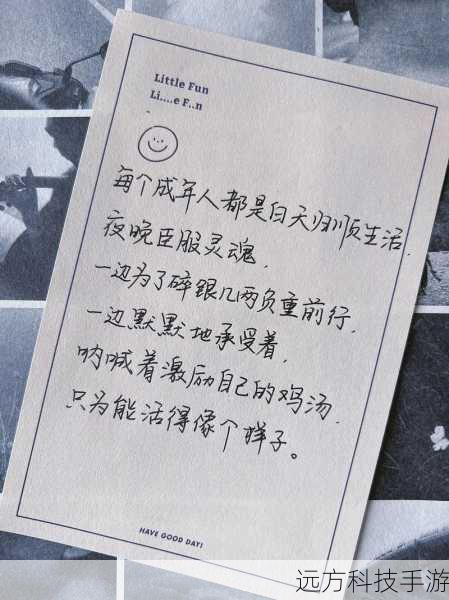 Little Fun
Li....e F..n
每个成年人都是白天归顺生活,
夜晚臣服灵魂,
一边为了碎银几两负重前行,
一边默默地承受着,
呐喊着激励自己的鸡汤,
只为能活得像个样子。
HAVE GOOD DAY!
远方科技手游